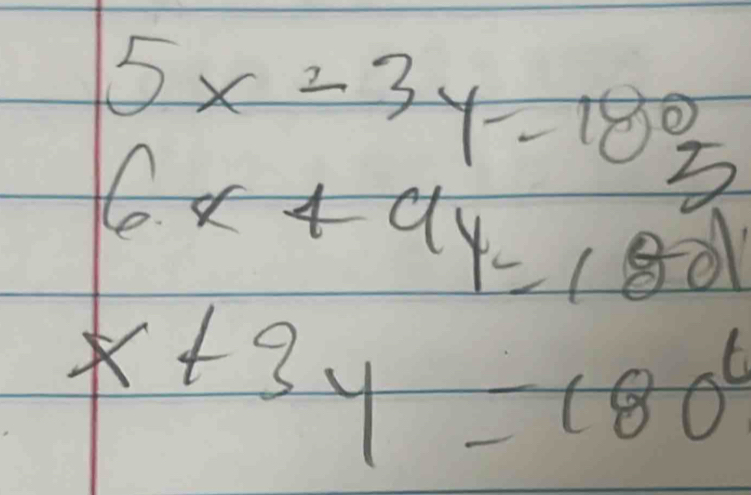 5x - 3y = 180
5
6x + 9y = 180
x + 3y = 180